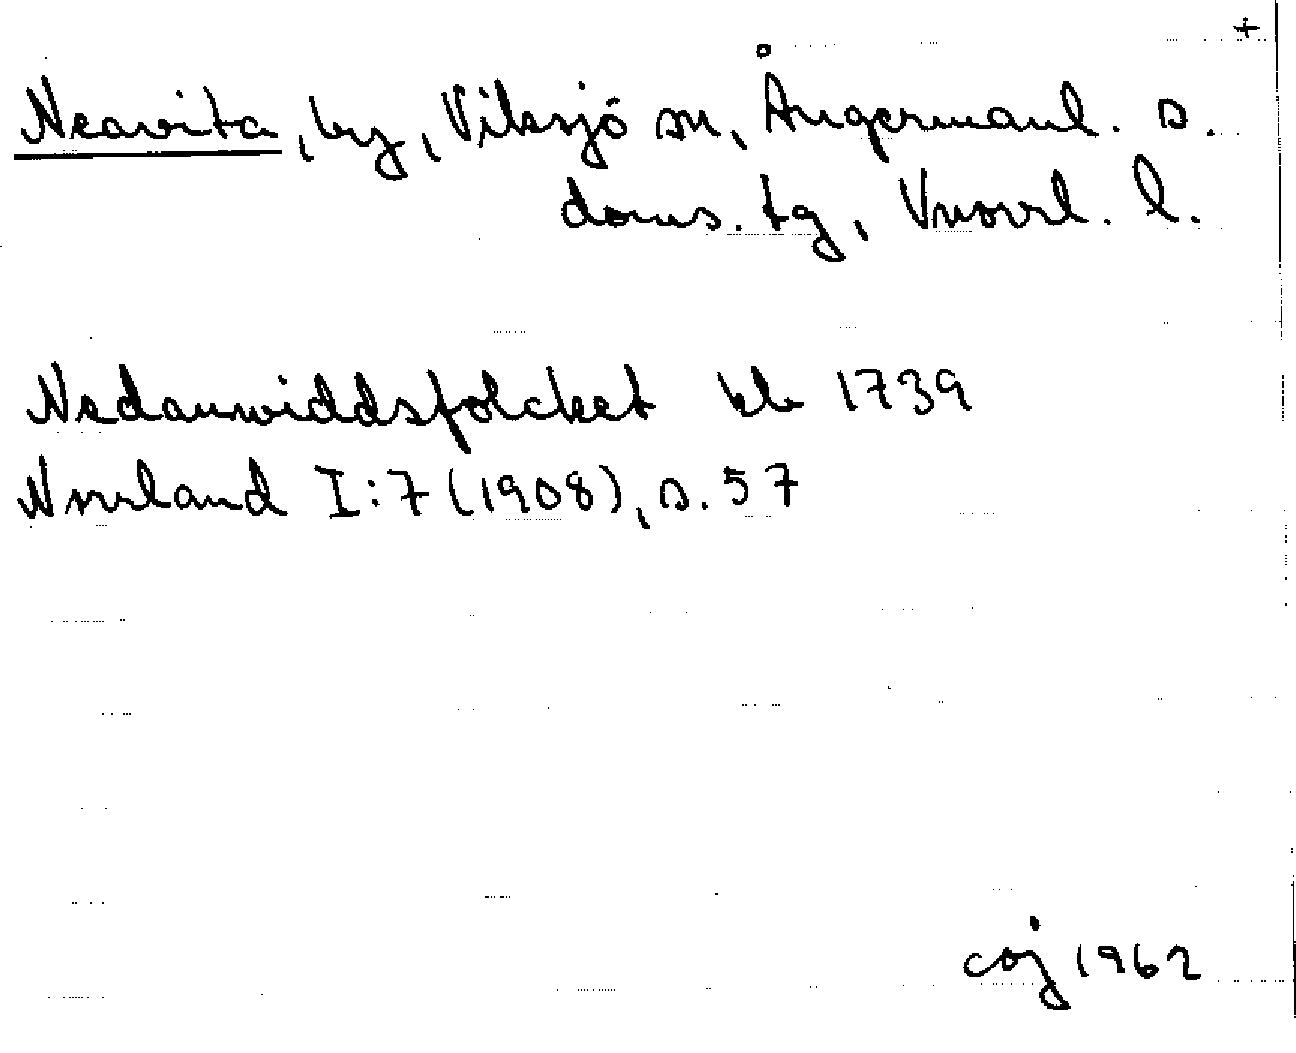 +
Neavita, by, Viksjö sn, Ångermanl. s.
doms. tg, Vnorrl. l.
Nedanwiddsfolcket kb 1739
Norrland I:7 (1908), s. 57
coj 1962